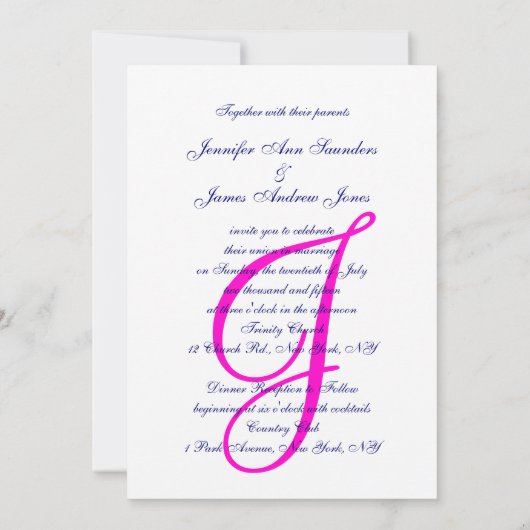 Together with their parents
Jennifer Ann Saunders
&
James Andrew Jones
invite you to celebrate
their union in marriage
on Sunday, the twentieth of July
two thousand and fifteen
at three o'clock in the afternoon
Trinity Church
12 Church Rd., New York, NY
Dinner Reception to Follow
beginning at six o'clock with cocktails
Country Club
1 Park Avenue, New York, NY
J